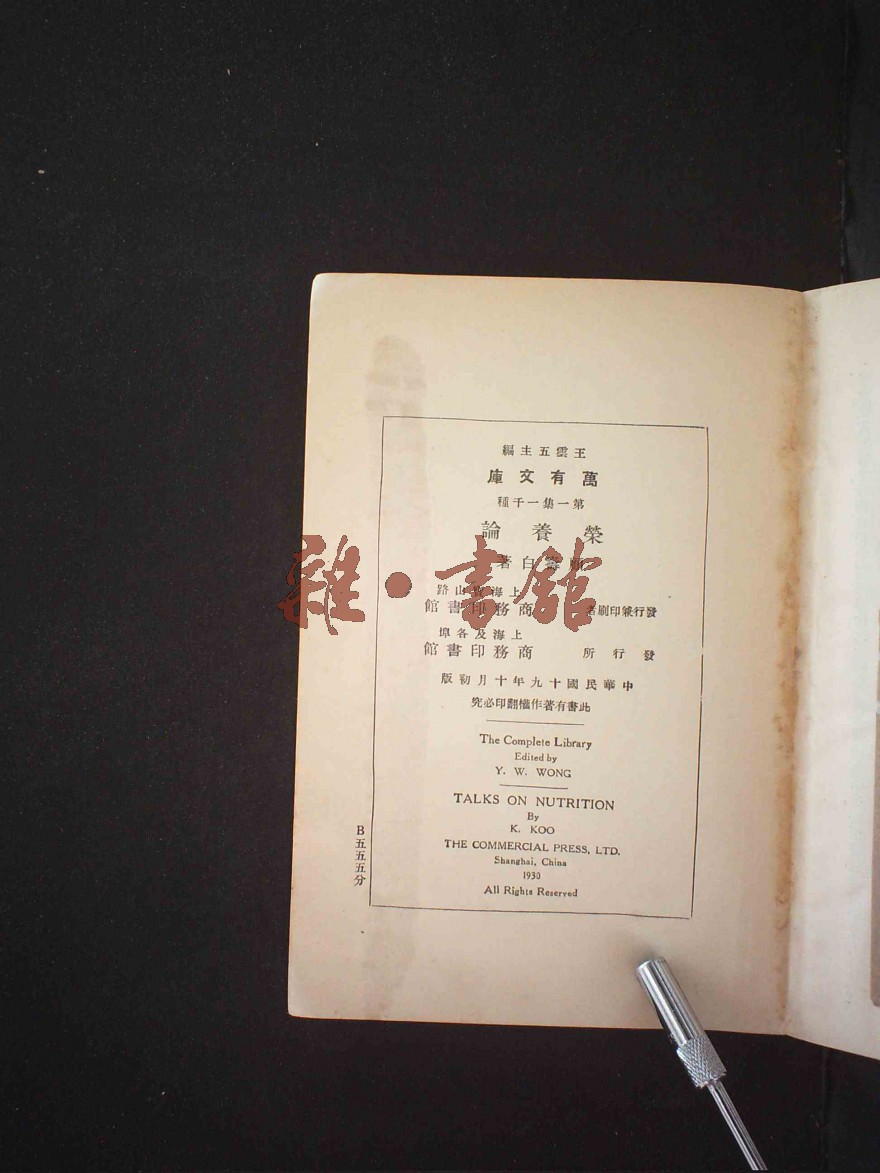 王雲五主編
萬有文庫
第一集一千種
榮養論
壽白著
上海寶山路
發行兼印刷者 商務印書館
上海及各埠
發行所 商務印書館
中華民國十九年十月初版
此書有著作權翻印必究
The Complete Library
Edited by
Y. W. WONG
TALKS ON NUTRITION
By
K. KOO
THE COMMERCIAL PRESS, LTD.
Shanghai, China
1930
All Rights Reserved
B五五五分
雜·書館